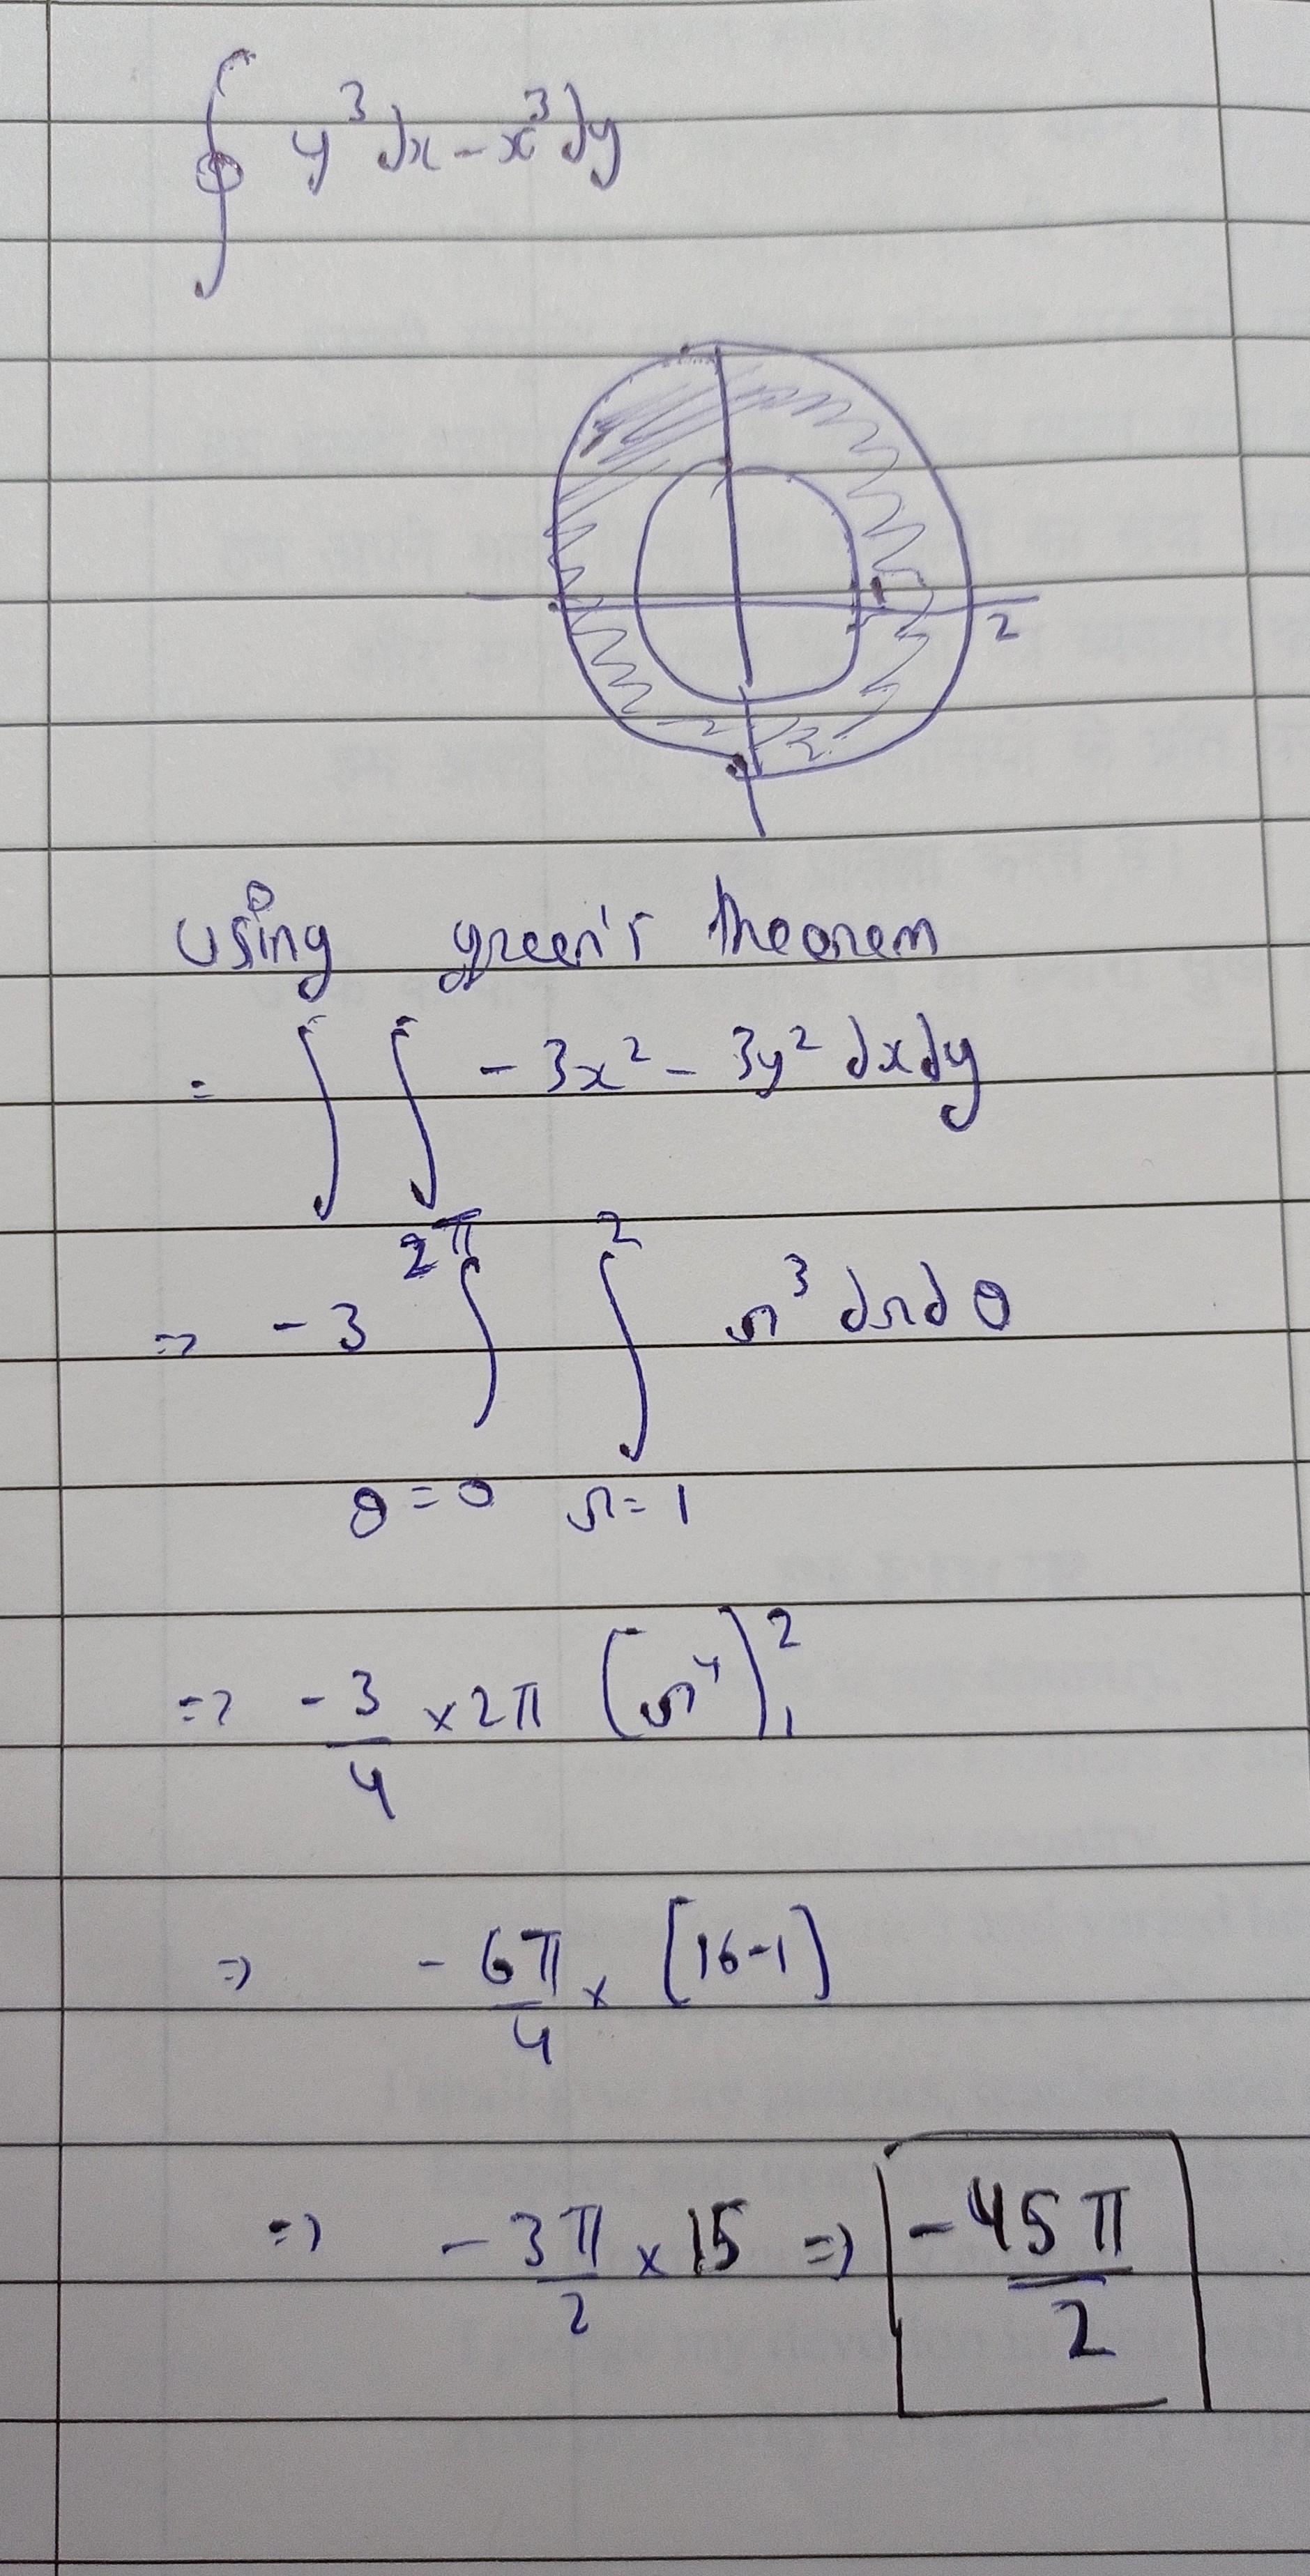 ∮ y³dx - x³dy
1
2
using green's theorem
= ∫∫ -3x² - 3y² dxdy
⇒ -3 ∫_{θ=0}^{2π} ∫_{r=1}^{2} r³ drdθ
⇒ -3/4 × 2π (r⁴)₁²
⇒ -6π/4 × [16-1]
⇒ -3π/2 × 15 ⇒ -45π/2